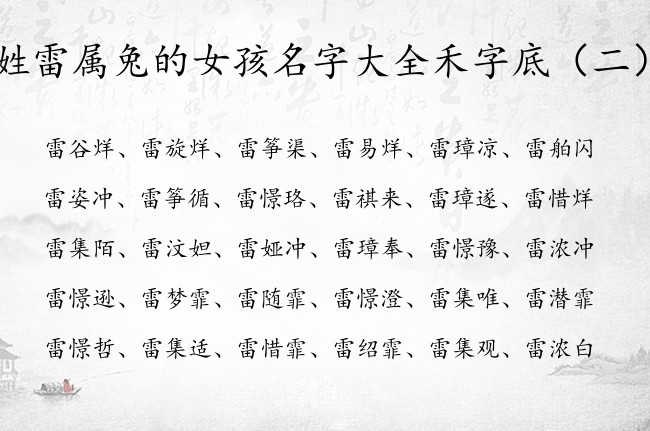 姓雷属兔的女孩名字大全禾字底（二）
雷谷烊、雷旋烊、雷筝渠、雷易烊、雷璋凉、雷舶闪
雷姿冲、雷筝循、雷憬珞、雷祺来、雷璋遂、雷惜烊
雷集陌、雷汶妲、雷娅冲、雷璋奉、雷憬豫、雷浓冲
雷憬逊、雷梦霏、雷随霏、雷憬澄、雷集唯、雷潜霏
雷憬哲、雷集适、雷惜霏、雷绍霏、雷集观、雷浓白